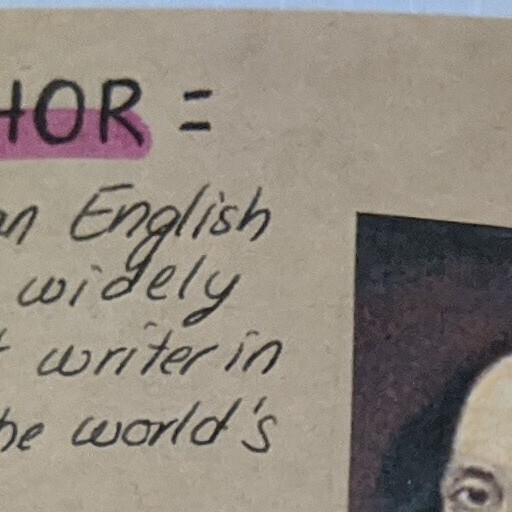 HOR =
an English
widely
writer in
he world's